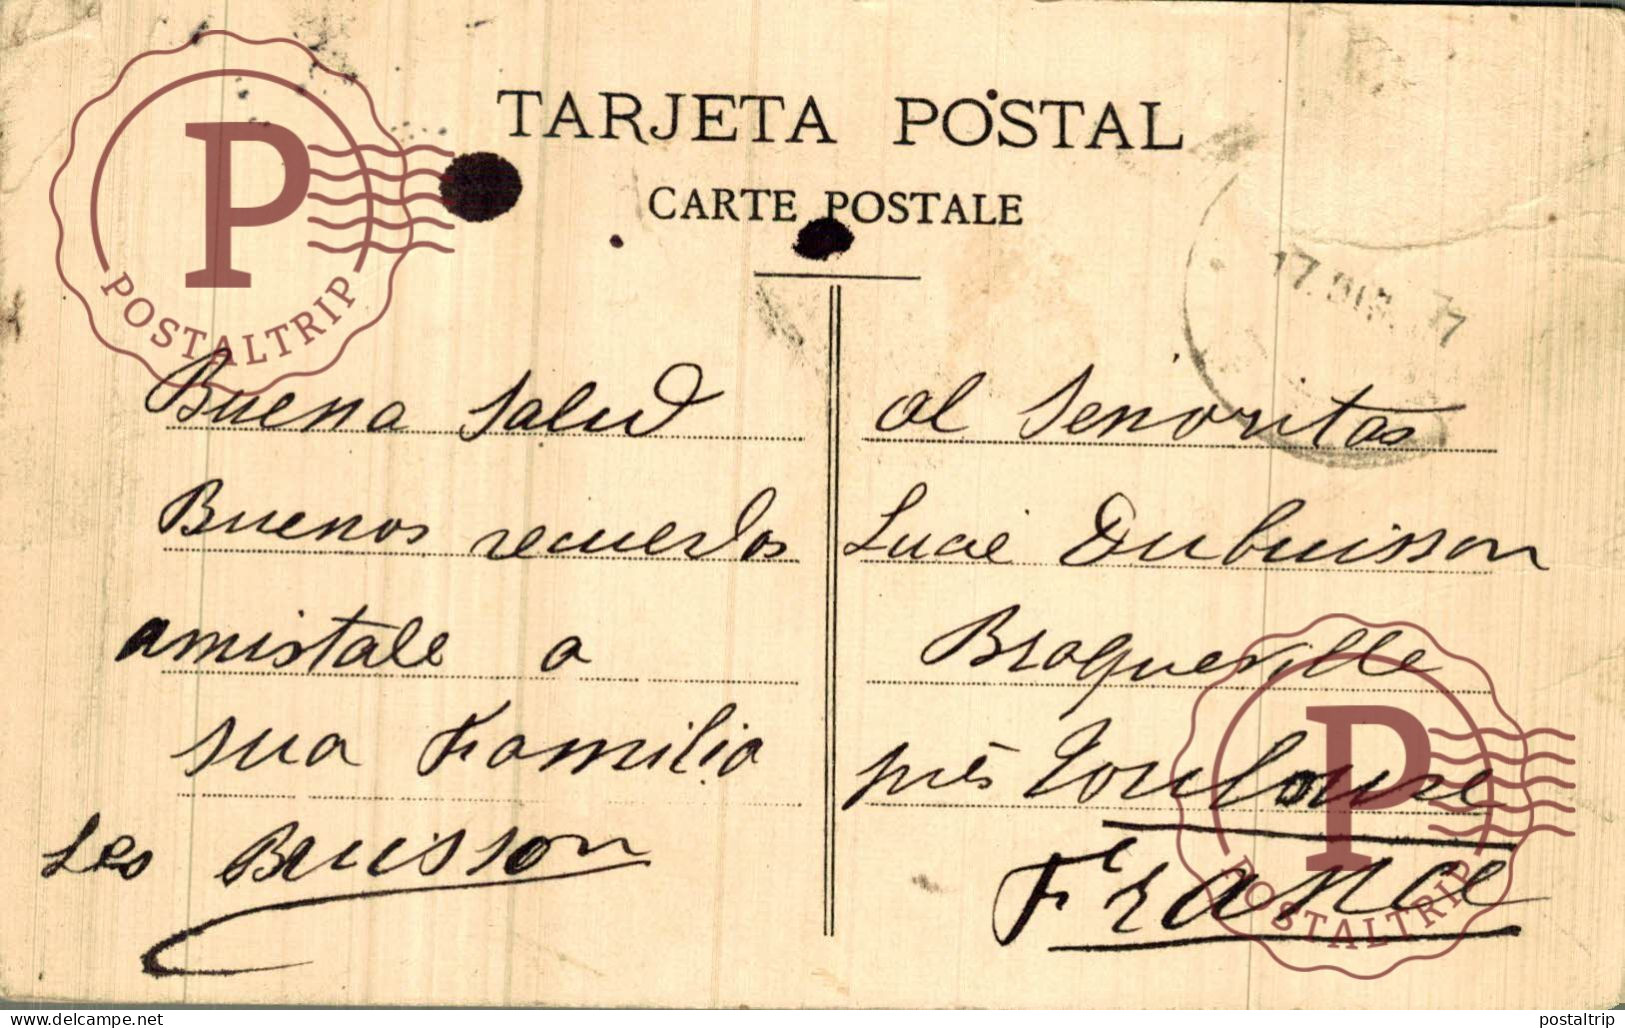 TARJETA POSTAL
CARTE POSTALE
P
POSTALTRIP
17
Buena salud
Buenos recuerdos
amistale a
sua Familia
Leo Buisson
al Senoritas
Lucie Dubuisson
Braqueville
près Toulouse
France
P
POSTALTRIP
www.delcampe.net
postaltrip